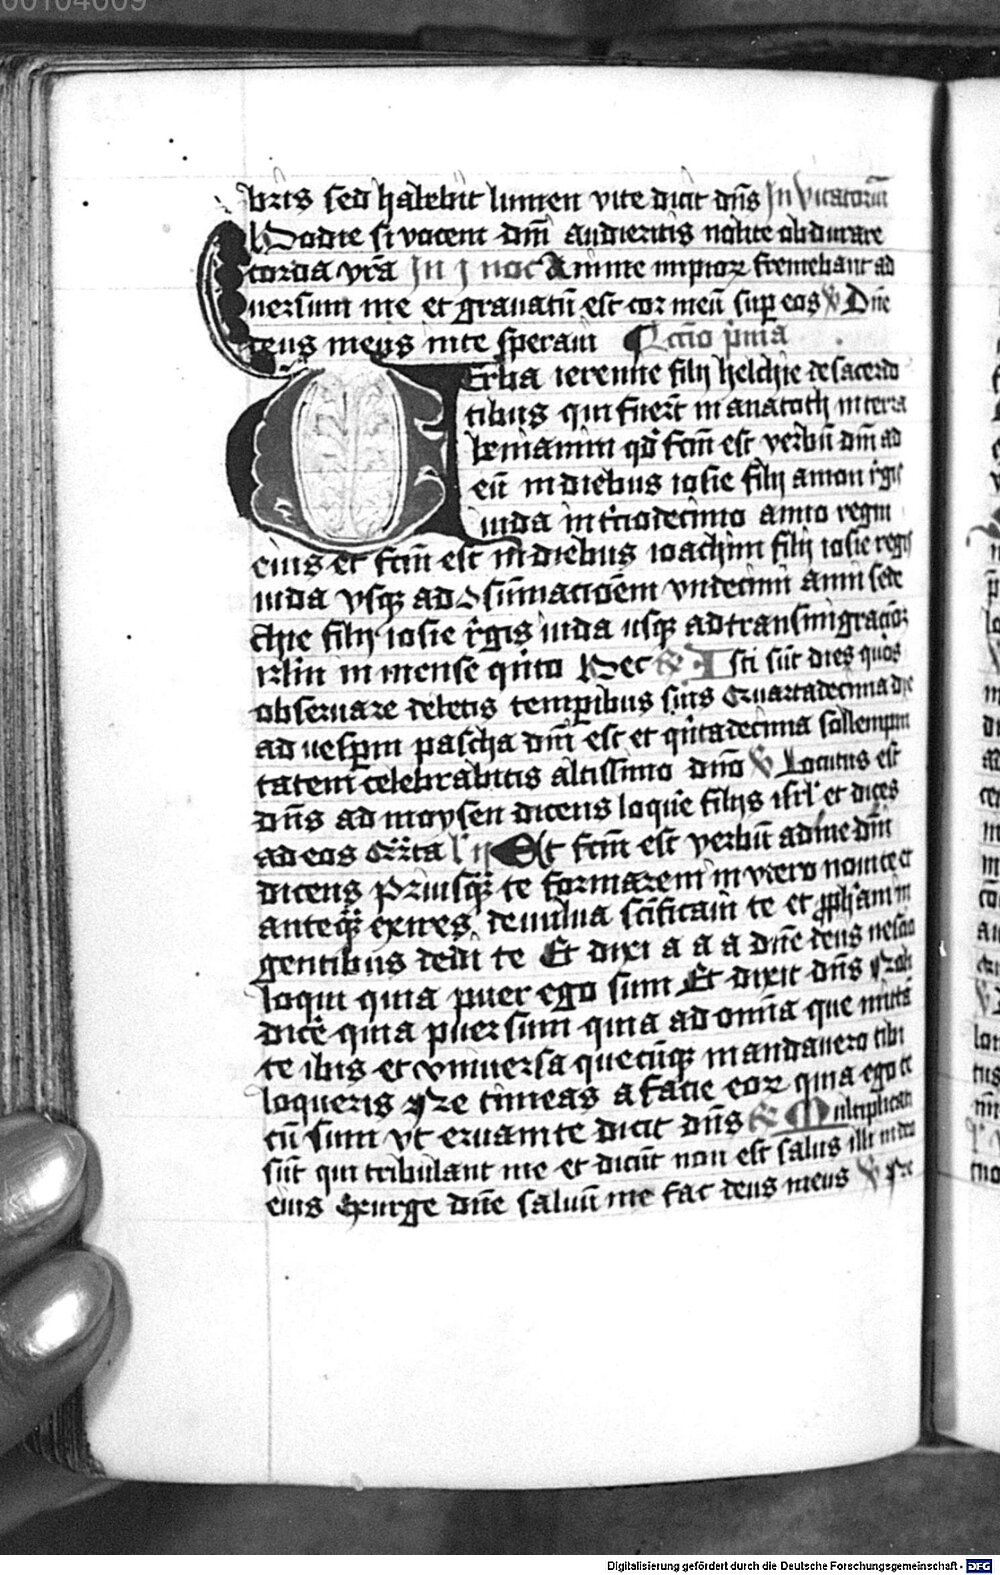 00104609
bris sed habebit lumen vite dicit dn̄s Inuitatoriū
Hodie si vocem dm̄ audieritis nolite obdurare
corda vr̄a In j noc A Uiri impioꝝ fremebant ad
uersum me et grauatū est cor meū suꝑ eos ℣ Dn̄e
deus meus in te speraui Lcc̄io p̄ma
Uerba ieremie filij helchie de sacerdo
tibus qui fuerūt in anatoth in terra
beniamin qd̄ fcm̄ est verbū dn̄i ad
eū in diebus iosie filij amon r̄gis
iuda in t̄ciodecimo anno regni
eius et fcm̄ est in diebus ioachim filij iosie regis
iuda vsqꝫ ad ↄsūmacōem vndecimi anni sede
chie filij iosie r̄gis iuda usqꝫ ad transmigracōꝫ
irlm̄ in mense qͥnto Hec ℟ Isti sūt dies quos
obseruare debetis temꝑibus suis Quartadecima die
ad uesꝑm pascha dn̄i est et qͥntadecima sollempni
tatem celebrabitis altissimo dn̄o ℣ Locutus est
dn̄s ad moysen dicens loquere filijs isrl̄ et dices
ad eos Qr̄ta l ij Et fcm̄ est verbū ad me dn̄i
dicens Priusqꝫ te formarem in vtero noui te et
anteqꝫ exires de uulua scīficaui te et ꝓpham in
gentibus dedi te Et dixi a a a dn̄e deus nescio
loqui quia puer ego sum Et dixit dn̄s noli
dic̄e quia puer sum quia ad omīa que mittā
te ibis et vniuersa quecūqꝫ mandauero tibi
loqueris Ne timeas a facie eoꝝ quia ego te
cū sum vt eruam te dicit dn̄s ℟ Multiplicati
sūt qui tribulant me et dicūt non est salus illi in deo
eius Exurge dn̄e saluū me fac deus meus ℣ Ne
Digitalisierung gefördert durch die Deutsche Forschungsgemeinschaft - DFG